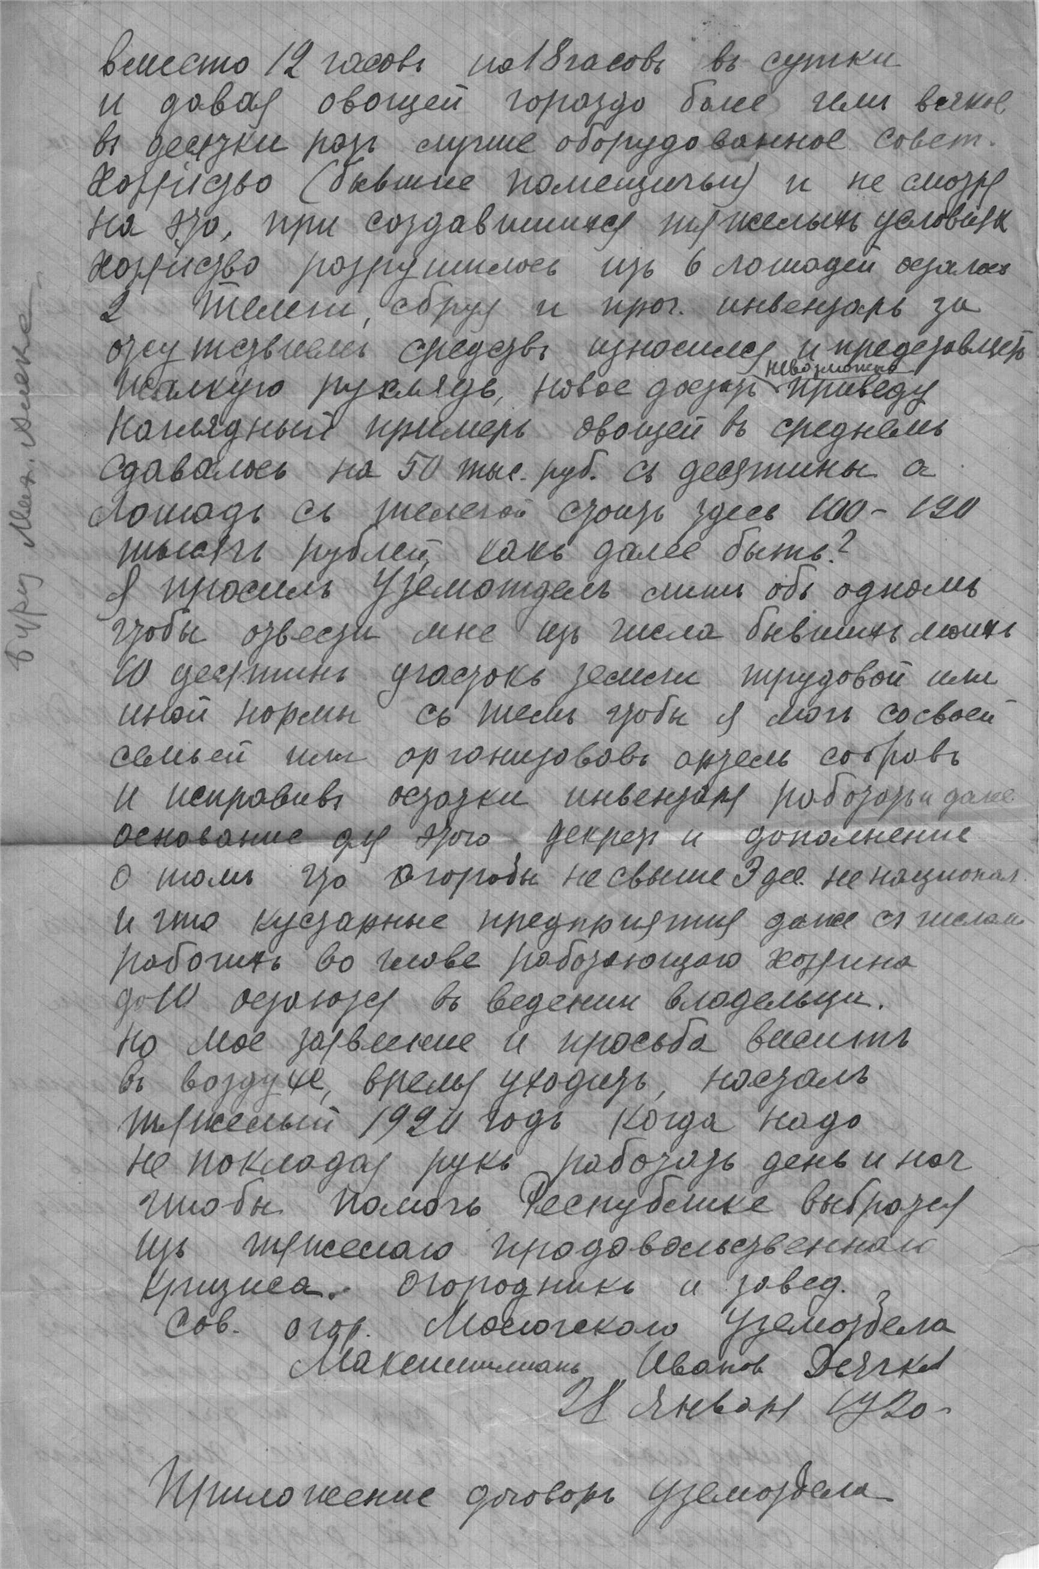 вместо 12 часовъ по 18 часовъ въ сутки
и давая овощей гораздо боле чем всякое
въ десятки разъ лучше оборудованное совет.
хозяйство (бывшие помещичьи) и не смотря
на это, при создавшихся тяжелыхъ условiях
хозяйство разрушилось изъ 6 лошадей осталось
2 Телеги, сбруя и проч. инвентарь за
отсутствием средствъ износился и представляетъ
жалкую рухлядь, новое достать невозможно приведу
наглядный примеръ овощей въ среднемъ
сдавалось на 50 тыс. руб. съ десятины а
лошадь съ телегой стоитъ здесь 100 - 120
тысячъ рублей, какъ далее быть?
Я просилъ Уземотделъ лишь объ одномъ
чтобы отвести мне изъ числа бывшихъ моихъ
10 десятинъ участокъ земли трудовой или
иной нормы съ темъ чтобы я могъ со своей
семьей или организовавъ артель собравъ
и исправивъ остатки инвентаря работать и даже
основание для этого декрет и дополнение
о томъ что огороды не свыше 3 дес. не национал.
и что кустарные предприятия даже съ числом
рабочихъ во главе работающаго хозяина
до 10 остаются въ ведении владельца.
но мое заявление и просьба виситъ
въ воздухе, время уходитъ, насталъ
тяжелый 1920 годъ когда надо
не покладая рукъ работать день и ноч
чтобы помочь Республике выбратся
изъ тяжелаго продовольственнаго
кризиса. Огородникъ и завед.
Сов. огор. Мологскаго Уземотдела
Максимилианъ Иванов Дьячков
28 Января 1920 -
Приложение договоръ уземотдела